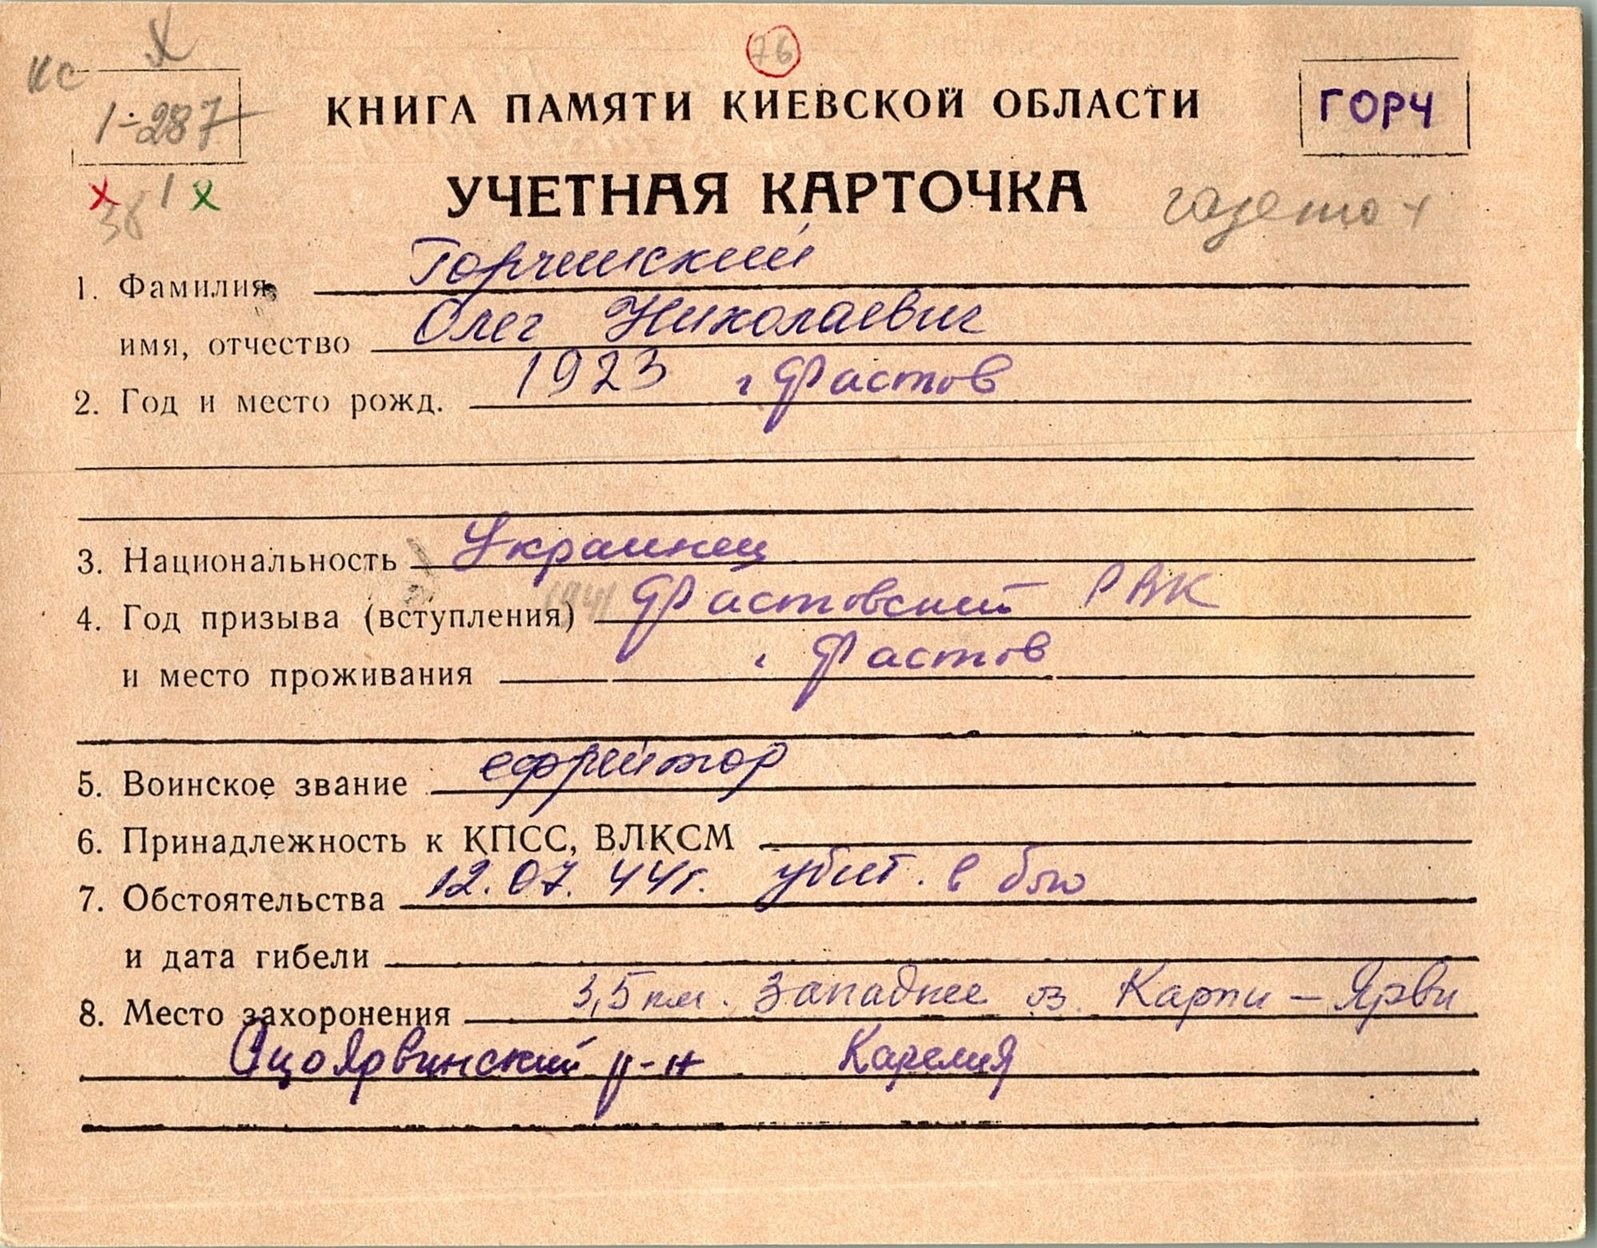 кс х 76
1-287 КНИГА ПАМЯТИ КИЕВСКОЙ ОБЛАСТИ ГОРЧ
х 38 1 х УЧЕТНАЯ КАРТОЧКА газета +
1. Фамилия Горчинский
имя, отчество Олег Николаевич
2. Год и место рожд. 1923 г Фастов
3. Национальность Украинец
4. Год призыва (вступления) 1941 Фастовский РВК
и место проживания г Фастов
5. Воинское звание ефрейтор
6. Принадлежность к КПСС, ВЛКСМ
7. Обстоятельства 12.07.44г. убит. в бою
и дата гибели
8. Место захоронения 3,5 км. Западнее оз. Карпи-Ярви
Суоярвинский р-н Карелия